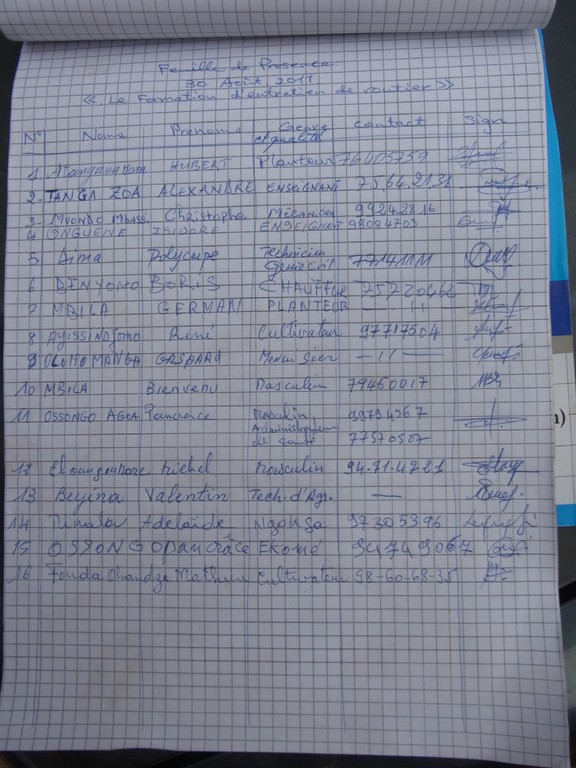 Feuille de Presence
30 Août 2011
« La Formation d'entretien de routier »
N° Noms Prenoms Genre et qualité contact Sign
1 HUBERT Planteur 76005759
2 TANGA ZOA ALEXANDRE ENSEIGNANT
3 Mvondo Mbass. Christophe Mécanicien 99242816
4 ONGUENE ISIDORE ENSEIGNANT 98084703
5 Aima Polycarpe Technicien
Général 77141111
6 BINYOMO BORIS CHAUFFEUR 75720466
7 MBILA GERMAN PLANTEUR — 11
8 Ayissi Ndjomo René Cultivateur 97717504
9 OLOMO MANGA GASPARD Menuisier — 11 —
10 MBILA Bienvenu Masculin 79460017
11 OSSONGO AGOA Pancrace Masculin 99794267
Administrateur
de santé 77570587
12 Michel Masculin 94.71.47.21
13 Beyina Valentin Tech. d'Ag. —
14 Adelaïde Ngonga 97305396
15 OSSONGO Pancrâce EKOMO 94749067
16 Fouda Mathieu Cultivateur 58-60-68-35